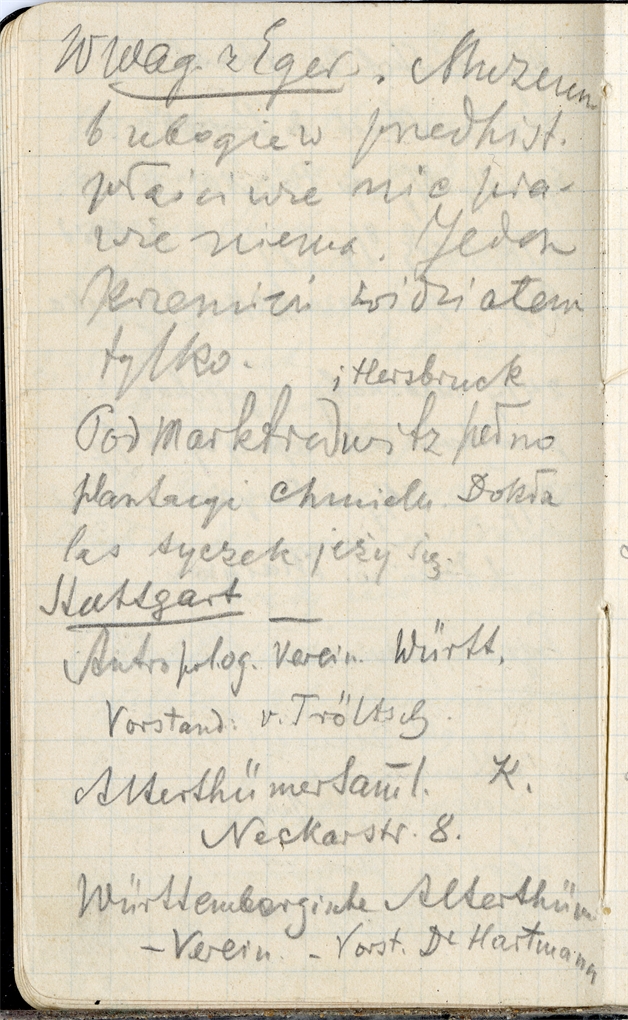 W wag. z Eger. Muzeum
b ubogie w predhist.
właściwie nic pra-
wie niema. Jeden
krzemień widziałem
tylko.
i Hersbruck
Pod Marktredwitz pełno
plantacyi chmielu Dokła
las tyczek jeży się.
Stuttgart
Antropolog. Verein. Württ.
Vorstand: v. Tröltsch.
Alterthümersam̄l. K.
Neckarstr. 8.
Württembergische Alterthüm.
-Verein. - Vorst. Dr Hartmann